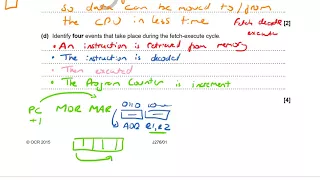 so data can be moved to/from
the CPU in less time
Fetch decode
execute
[2]
(d) Identify four events that take place during the fetch-execute cycle.
• An instruction is retrieved from memory
• The instruction is decoded
• Then executed
• The Program Counter is increment
[4]
PC MDR MAR 0110 10
+1
ADD R1, R2
© OCR 2015
J276/01